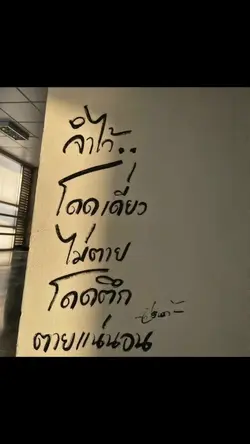 จำไว้..
โดดเดี่ยว
ไม่ตาย
โดดตึก
ตายแน่นอน